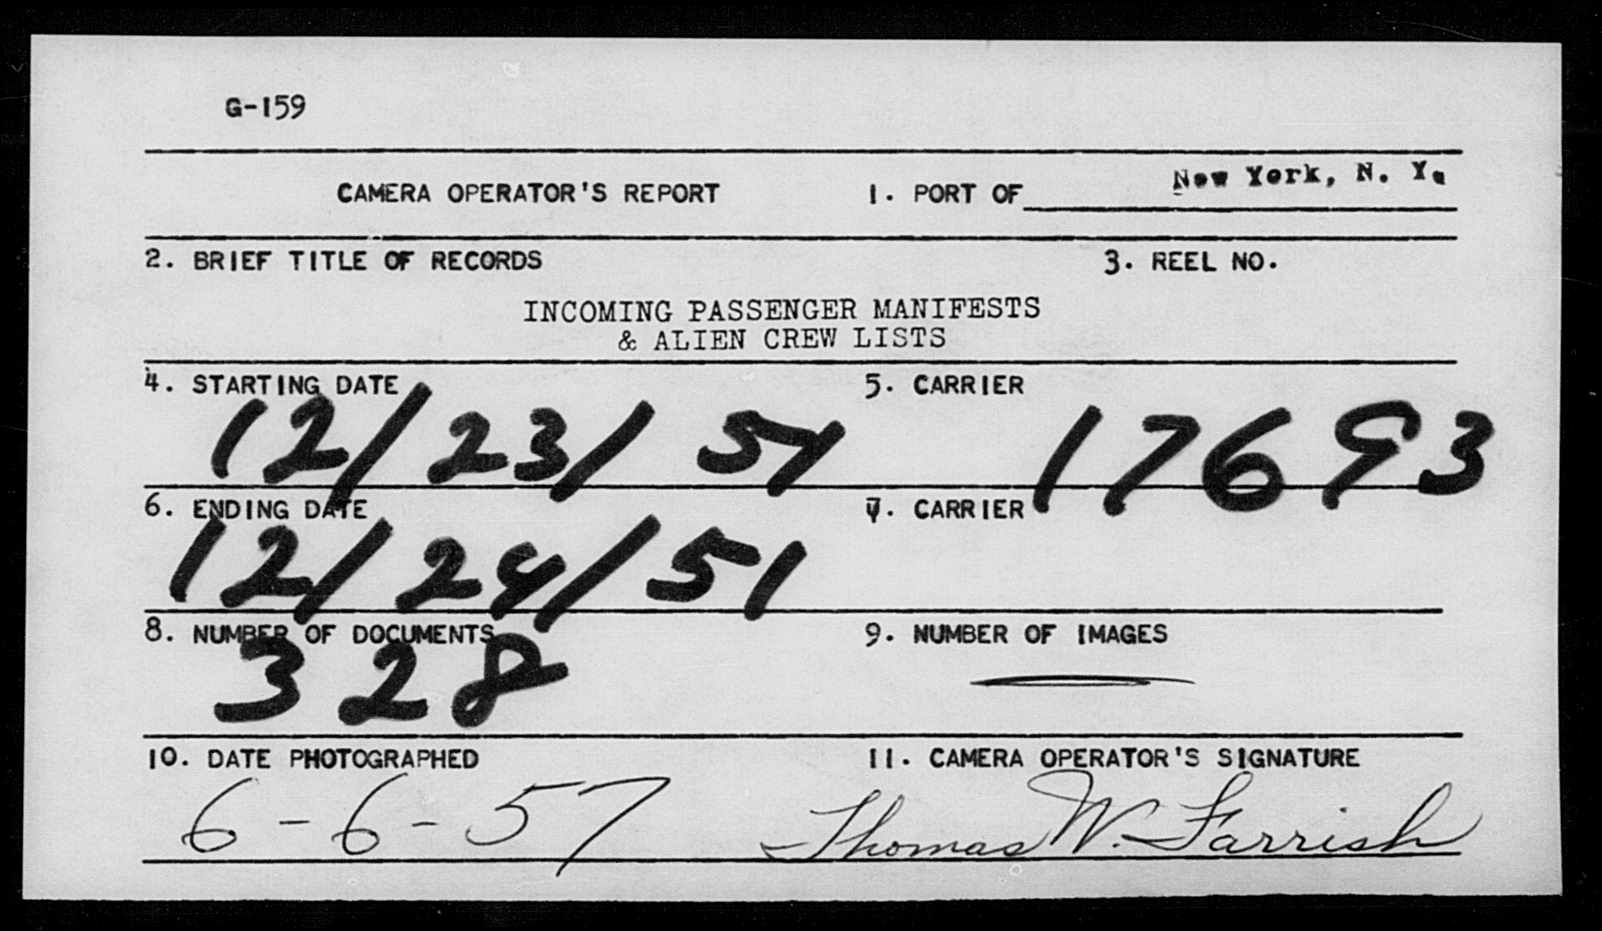 G-159
CAMERA OPERATOR'S REPORT 1. PORT OF New York, N. Y.
2. BRIEF TITLE OF RECORDS 3. REEL NO.
INCOMING PASSENGER MANIFESTS
& ALIEN CREW LISTS
4. STARTING DATE 5. CARRIER
12/23/51 17693
6. ENDING DATE 7. CARRIER
12/24/51
8. NUMBER OF DOCUMENTS 9. NUMBER OF IMAGES
328
10. DATE PHOTOGRAPHED 11. CAMERA OPERATOR'S SIGNATURE
6-6-57 Thomas W. Farrish